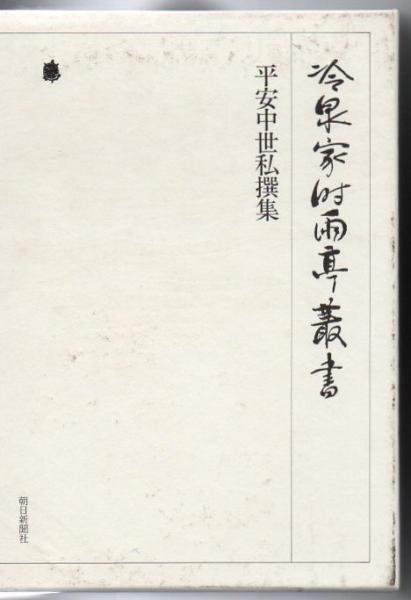 冷泉家时雨亭叢書
平安中世私撰集
朝日新聞社